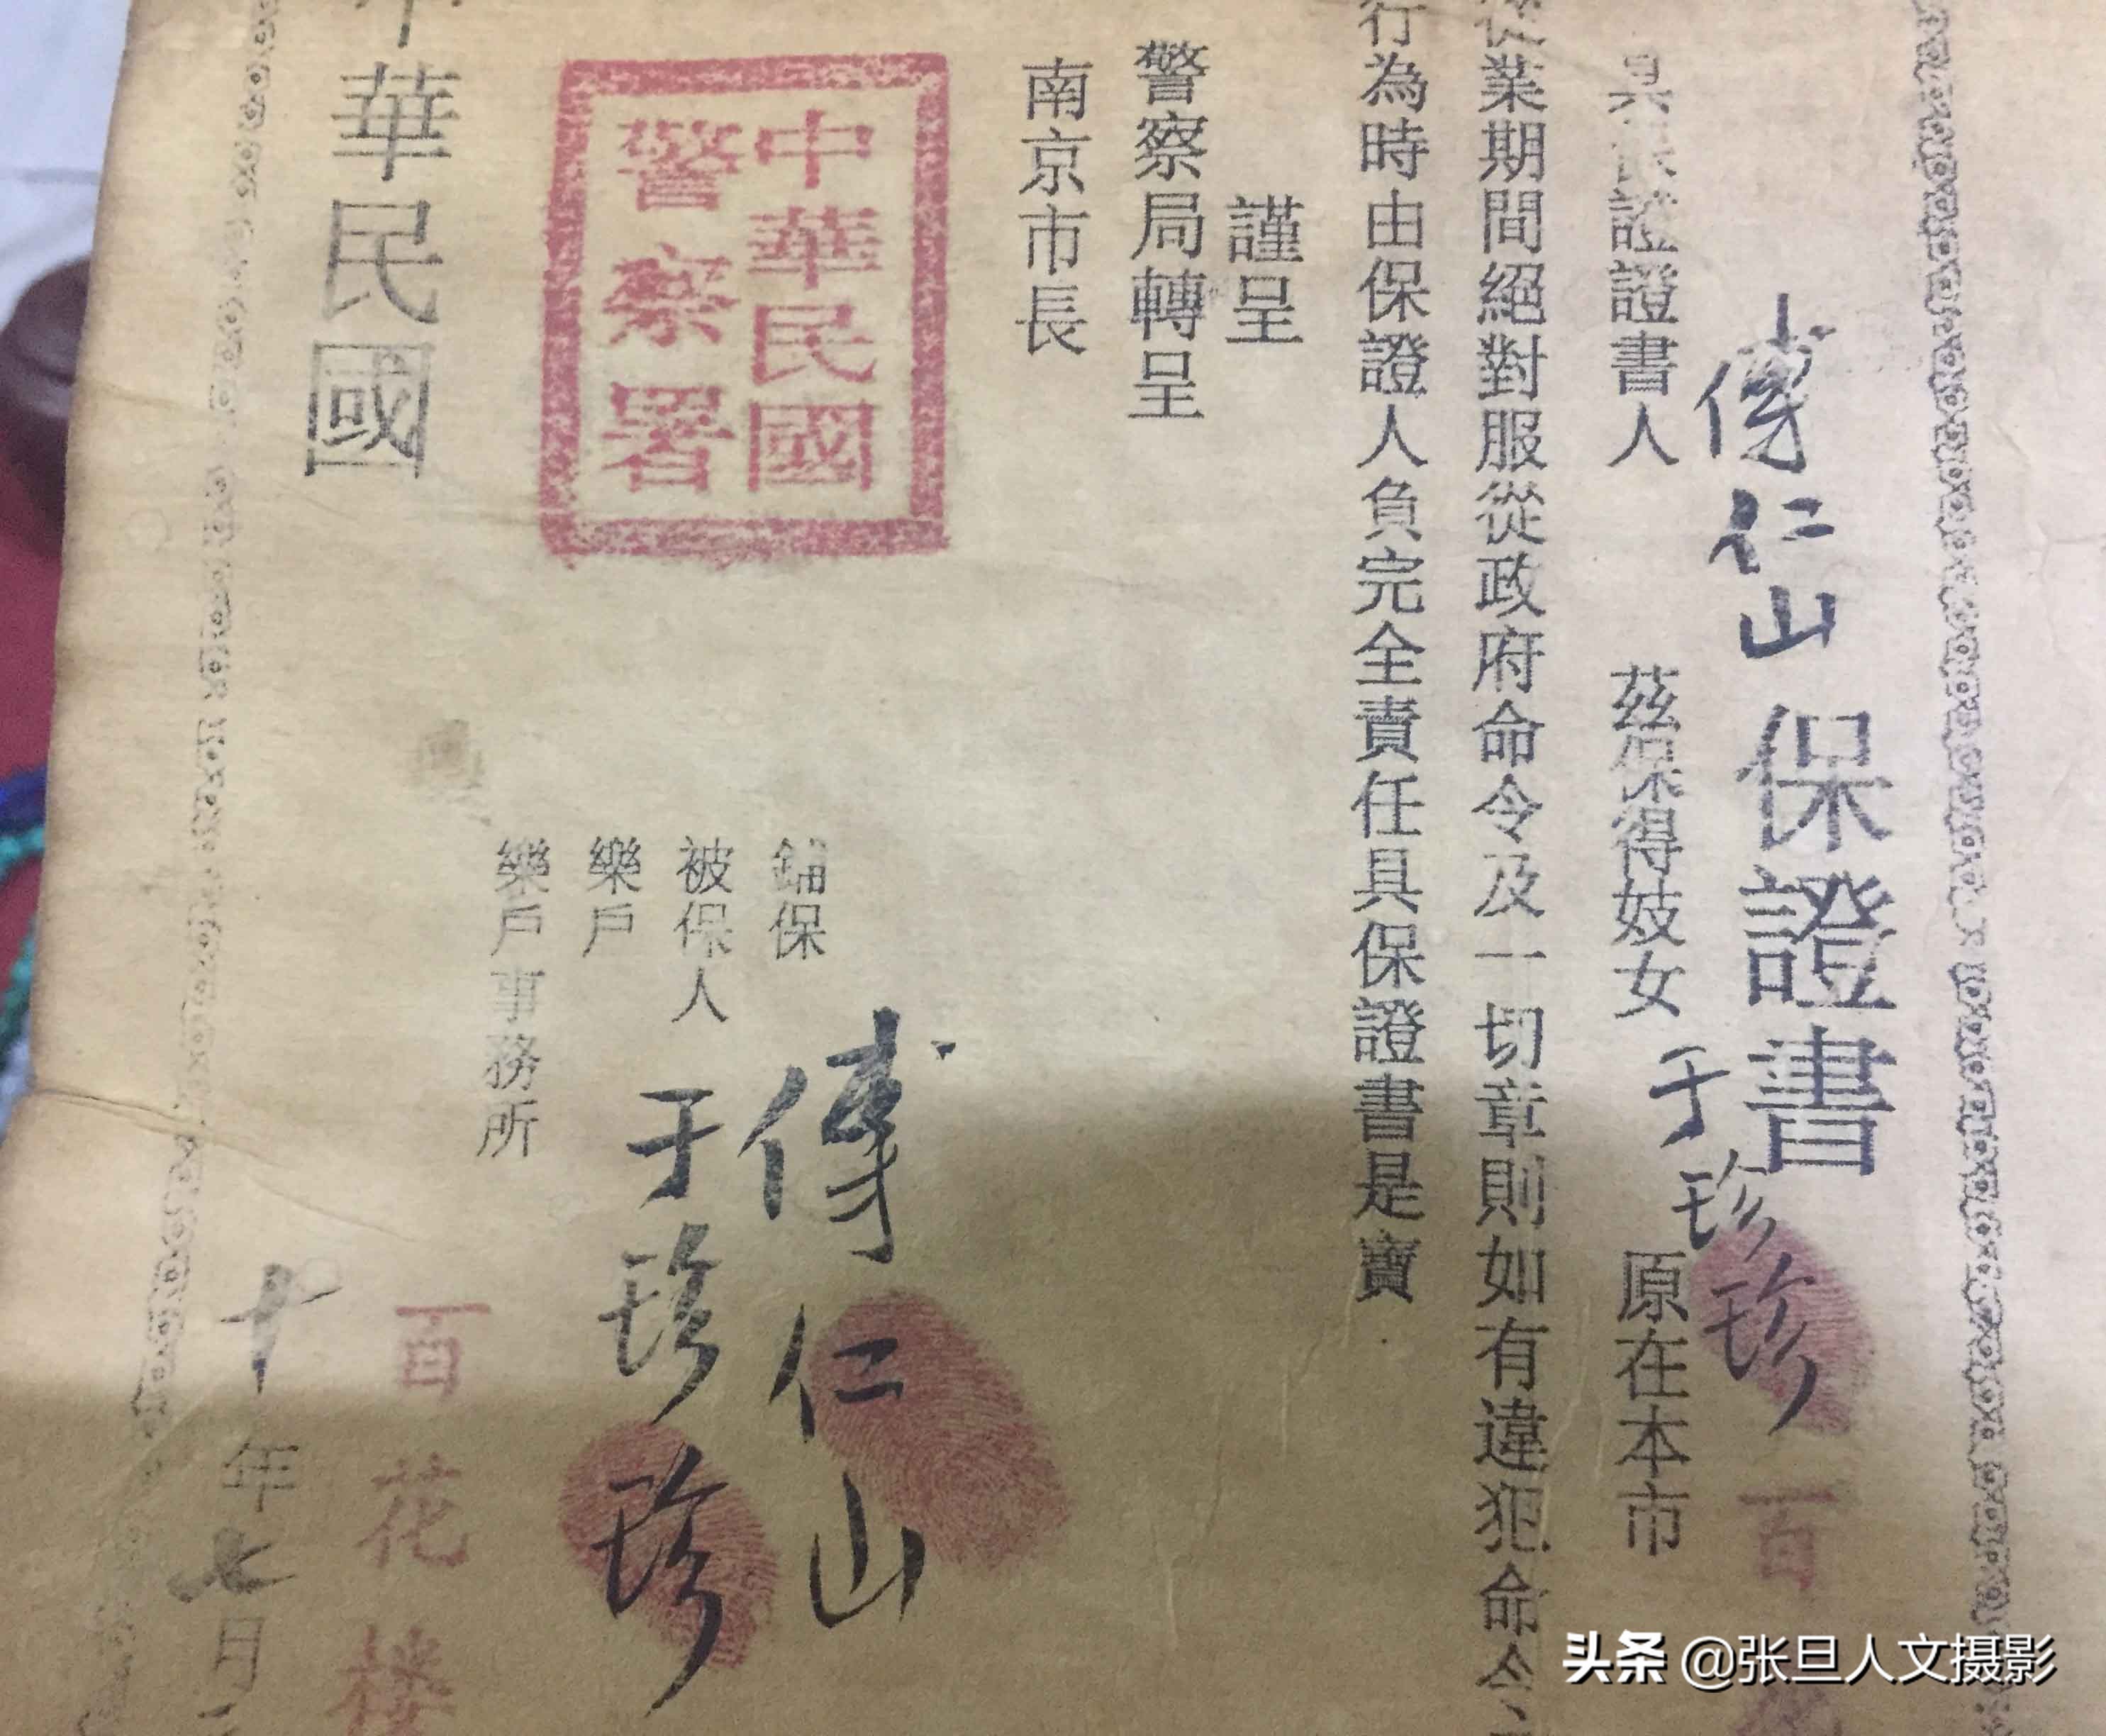 保證書
傅仁山
具保證證書人 茲保得妓女于珍珍原在本市百
從業期間絕對服從政府命令及一切章則如有違犯命令
行為時由保證人負完全責任具保證書是寶
謹呈
警察局轉呈
南京市長
中華民國
警察署
鋪保 傅仁山
被保人 于珍珍
樂戶
樂戶事務所
百花楼
中華民國 十年七月
头条 @张旦人文摄影